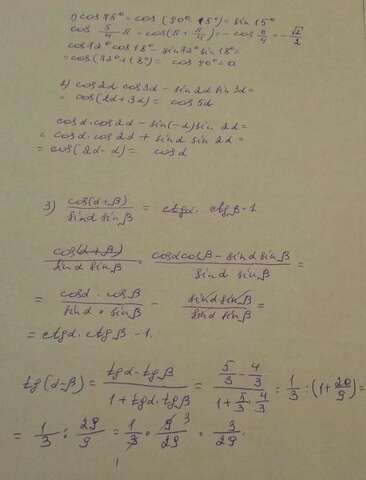 1) cos 75° = cos (90° - 15°) = sin 15°
cos 5/4 π = cos(π + π/4) = - cos π/4 = - √2/2
cos 72° cos 18° - sin 72° sin 18° =
= cos(72° + 18°) = cos 90° = 0
2) cos 2α cos 3α - sin 2α sin 3α =
= cos(2α + 3α) = cos 5α
cos α · cos 2α - sin(-α) sin 2α =
= cos α · cos 2α + sin α sin 2α =
= cos(2α - α) = cos α
3) cos(α+β) / sin α sin β = ctg α · ctg β - 1.
cos(α+β) / sin α sin β = cos α cos β - sin α sin β / sin α sin β =
= cos α · cos β / sin α · sin β - sin α sin β / sin α sin β =
= ctg α · ctg β - 1.
tg(α-β) = tg α - tg β / 1 + tg α · tg β = 5/3 - 4/3 / 1 + 5/3 · 4/3 = 1/3 : (1 + 20/9) =
= 1/3 : 29/9 = 1/3 · 9 3/29 = 3/29.